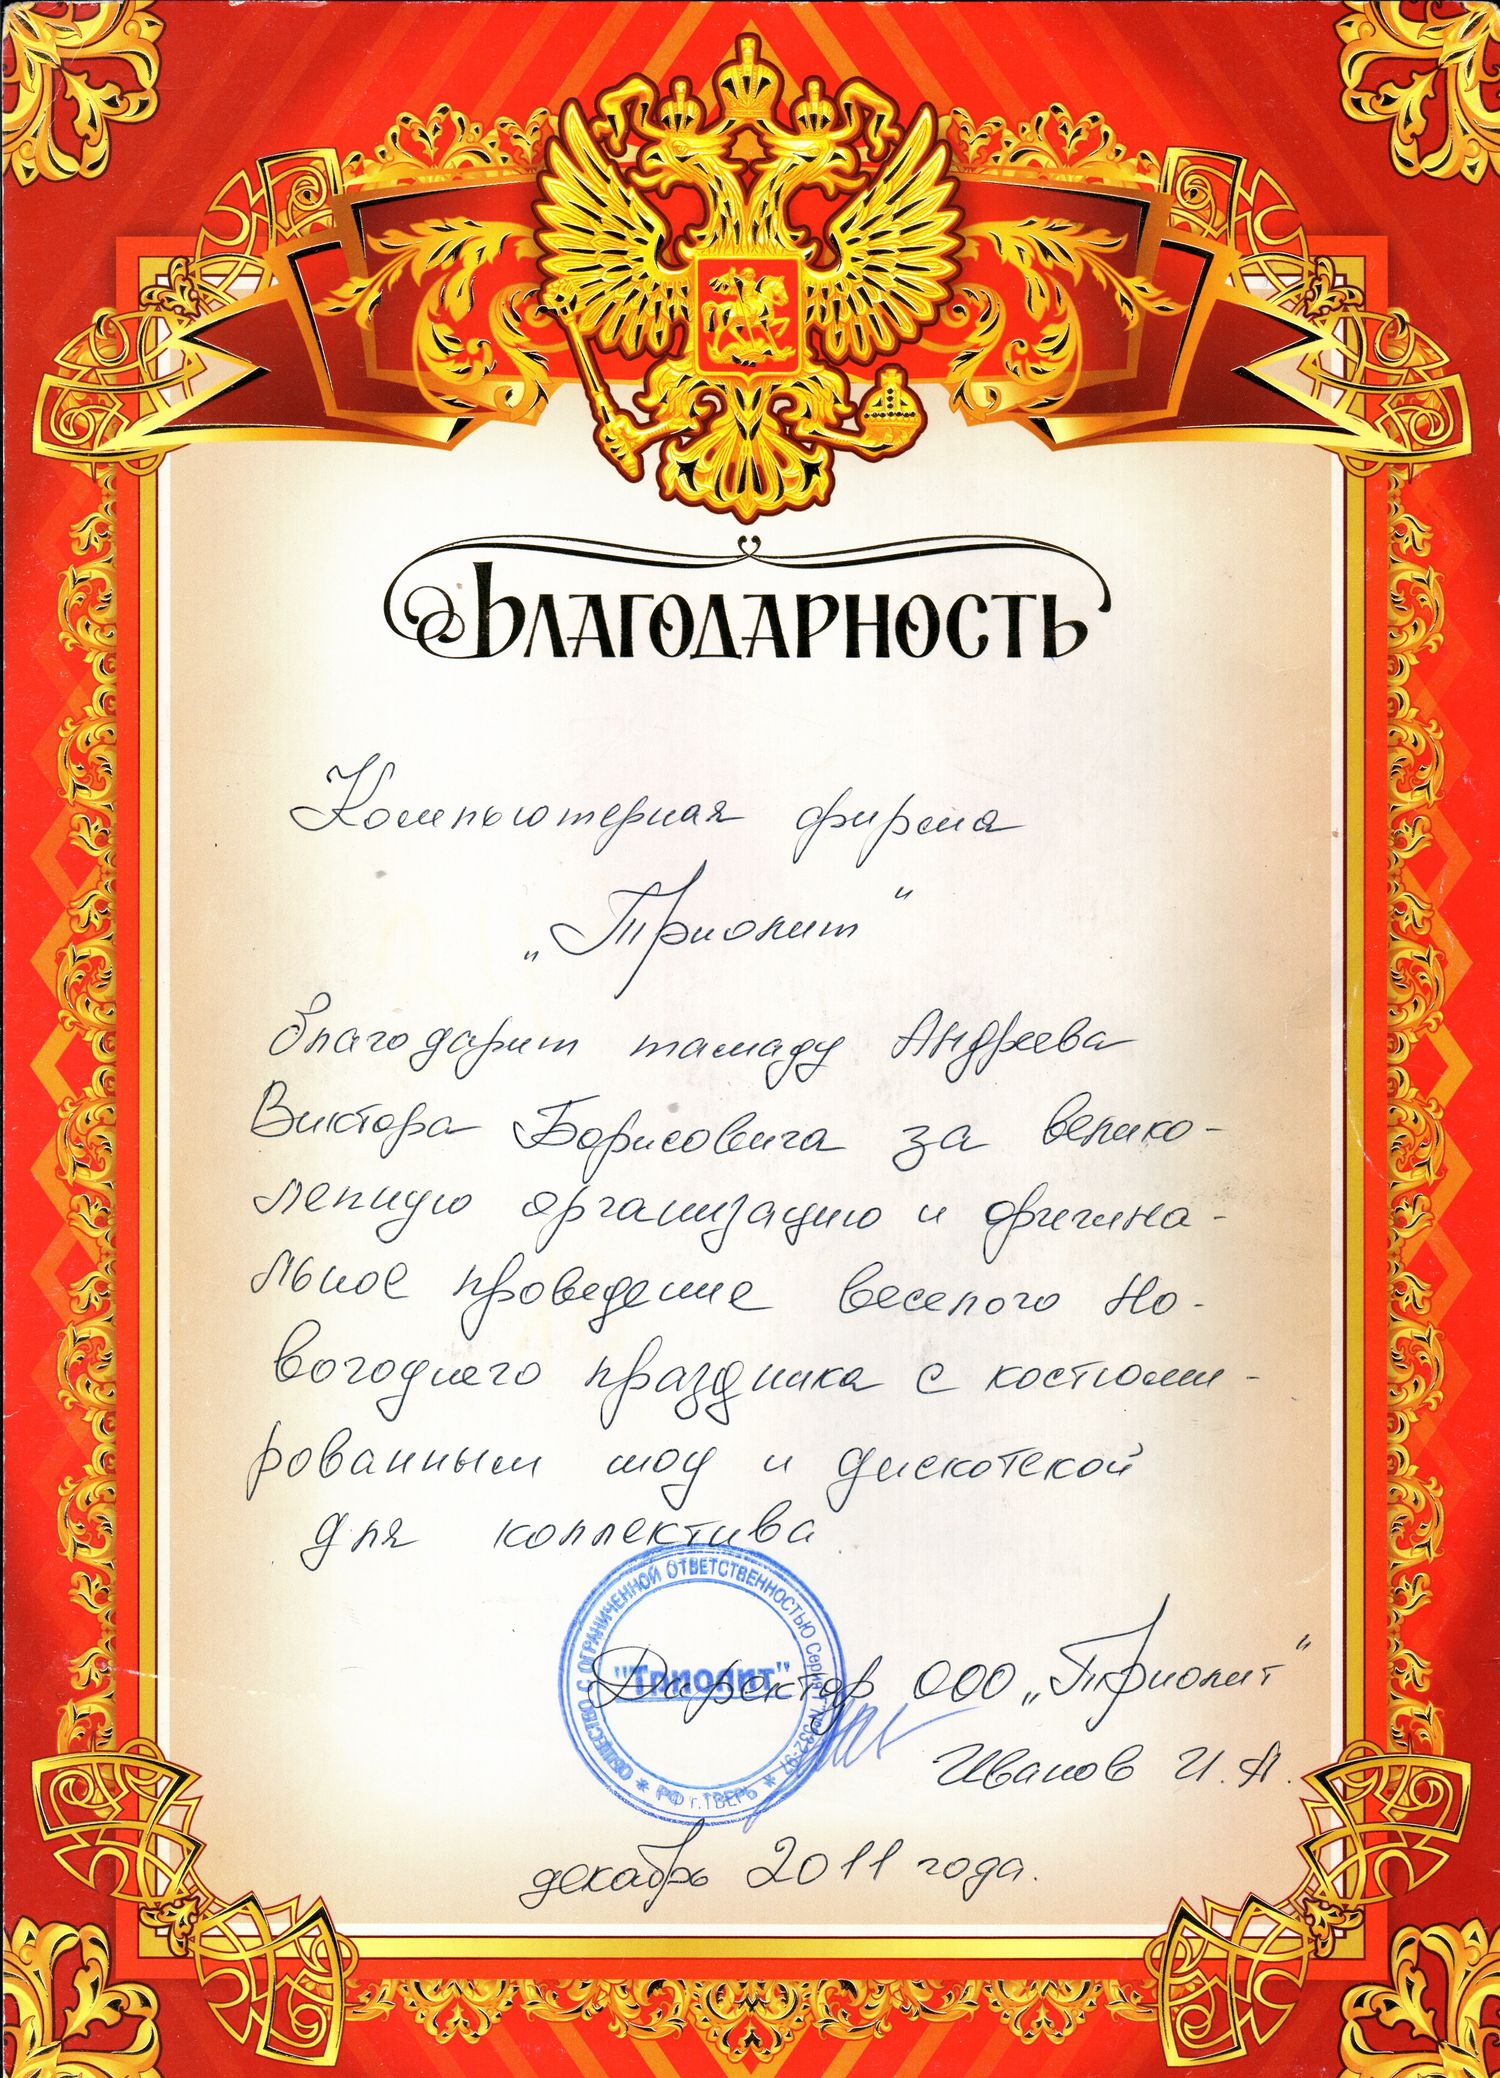 Благодарность
Компьютерная фирма
„Триолит"
Благодарит тамаду Андреева
Виктора Борисовича за велико-
лепную организацию и оригина-
льное проведение веселого Но-
вогоднего праздника с костюми-
рованным шоу и дискотекой
для коллектива
ОБЩЕСТВО С ОГРАНИЧЕННОЙ ОТВЕТСТВЕННОСТЬЮ
"Триолит"
* РФ г.ТВЕРЬ *
Директор ООО „Триолит"
Иванов И.А.
декабрь 2011 года.